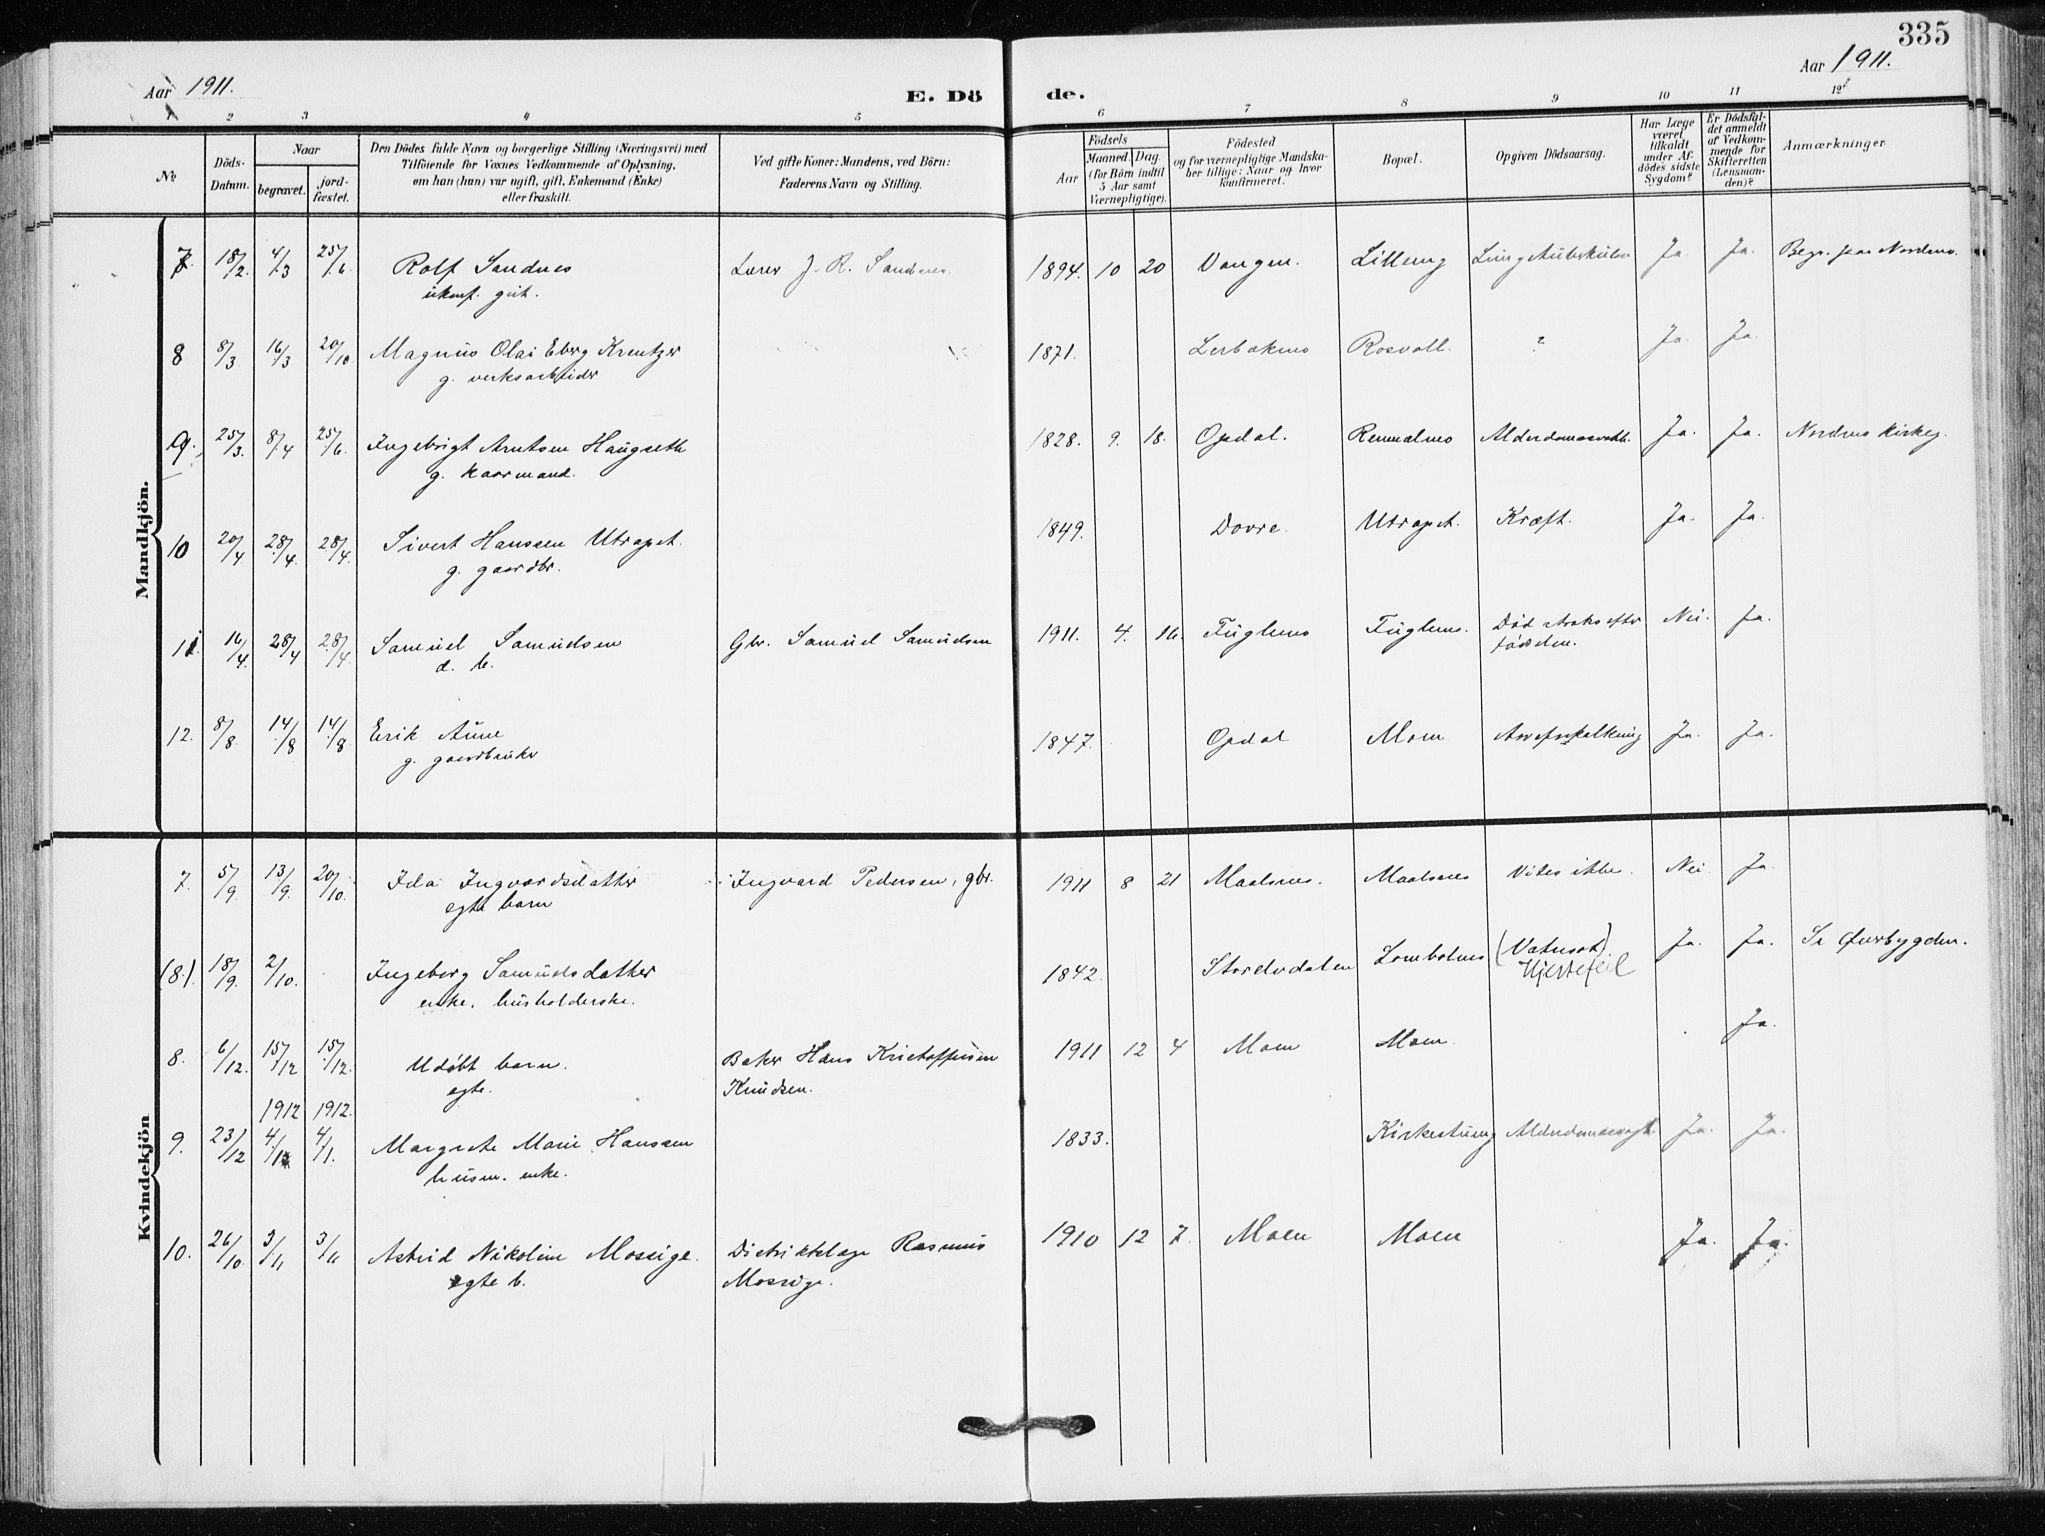 335
Aar 1911.
E. Dö de.
Aar 1911.
1 2 3 4 5 6 7 8 9 10 11 12
No.
Döds-Datum.
Naar
begravet.
jord-fæstet.
Den Dödes fulde Navn og borgerlige Stilling (Næringsvei) med
Tilföiende for Voxnes Vedkommende af Oplysning,
om han (hun) var ugift, gift, Enkemand (Enke)
eller fraskilt.
Ved gifte Koner: Mandens, ved Börn:
Faderens Navn og Stilling.
Födsels
Aar
Maaned. Dag.
(for Börn indtil
5 Aar samt
Værnepligtige).
Födested
og for værnepligtige Mandska-
ber tillige: Naar og hvor
konfirmeret.
Bopæl.
Opgiven Dödsaarsag.
Har Læge
været
tilkaldt
under Af-
dödes sidste
Sygdom?
Er Dödsfal-
det anmeldt
af Vedkom-
mende for
Skifteretten
(Lensman-
den)?
Anmærkninger.
Mandkjön.
7. 18/2. 4/3 25/6 Rolf Sandnes Lærer J. R. Sandnes. 1894. 10 20 Vangen. Ja Ja.
ukonf. gut.
8 8/3 16/3 20/10 Magnus Olai Eberg Kreutzer 1871. Rosvoll. ? Ja. Ja.
g. verksarbeider
9. 25/3. 8/4 25/6. Ingebrigt Arntsen Haugseth 1828. 9. 18. Opdal. Ja. Ja. Kirkeg.
g. kaarmand.
10 20/4 28/4. 28/4. Sivert Hanssen Utrapet. 1849. Dovre. Utrapet. Kræft. Ja. Ja.
g. gaardbr.
11. 16/4. 28/4 28/4 Samuel Samuelsen Gbr. Samuel Samuelsen 1911. 4. 16. Fuglemo Fuglemo. Død straks efter Nei Ja.
d. b. fødselen.
12. 8/8. 14/8 14/8 Erik Aune 1847. Opdal Moen Ja. Ja.
g. gaardbruker
Kvindekjön
7. 5/9. 13/9. 20/10. Ida Ingvardsdatter Ingvard Pedersen, gbr. 1911 8 21 Maalsnes. Maalsnes Vites ikke. Nei. Ja.
egte barn
(8.) 18/9. 2/10. Ingeborg Samuelsdatter 1842. Storelvdalen (Vatersot) Ja. Ja. Se Øverbygden.
enke, husholderske. Hjertefeil
8. 6/12. 15/12 15/12. Udøbt barn. Baker Hans Kristoffersen 1911 12 4 Moen Moen. Ja.
egte. Knudsen.
1912 1912.
9. 23/12 4/1 4/1. Margrete Marie Hanssen 1833. Ja. Ja.
husm. enke.
10. 26/10. 3/11 3/11 Astrid Nikoline Mossige. Distriktslæge Rasmus 1910 12 7. Moen Moen Ja. Ja.
egte b. Mossige.